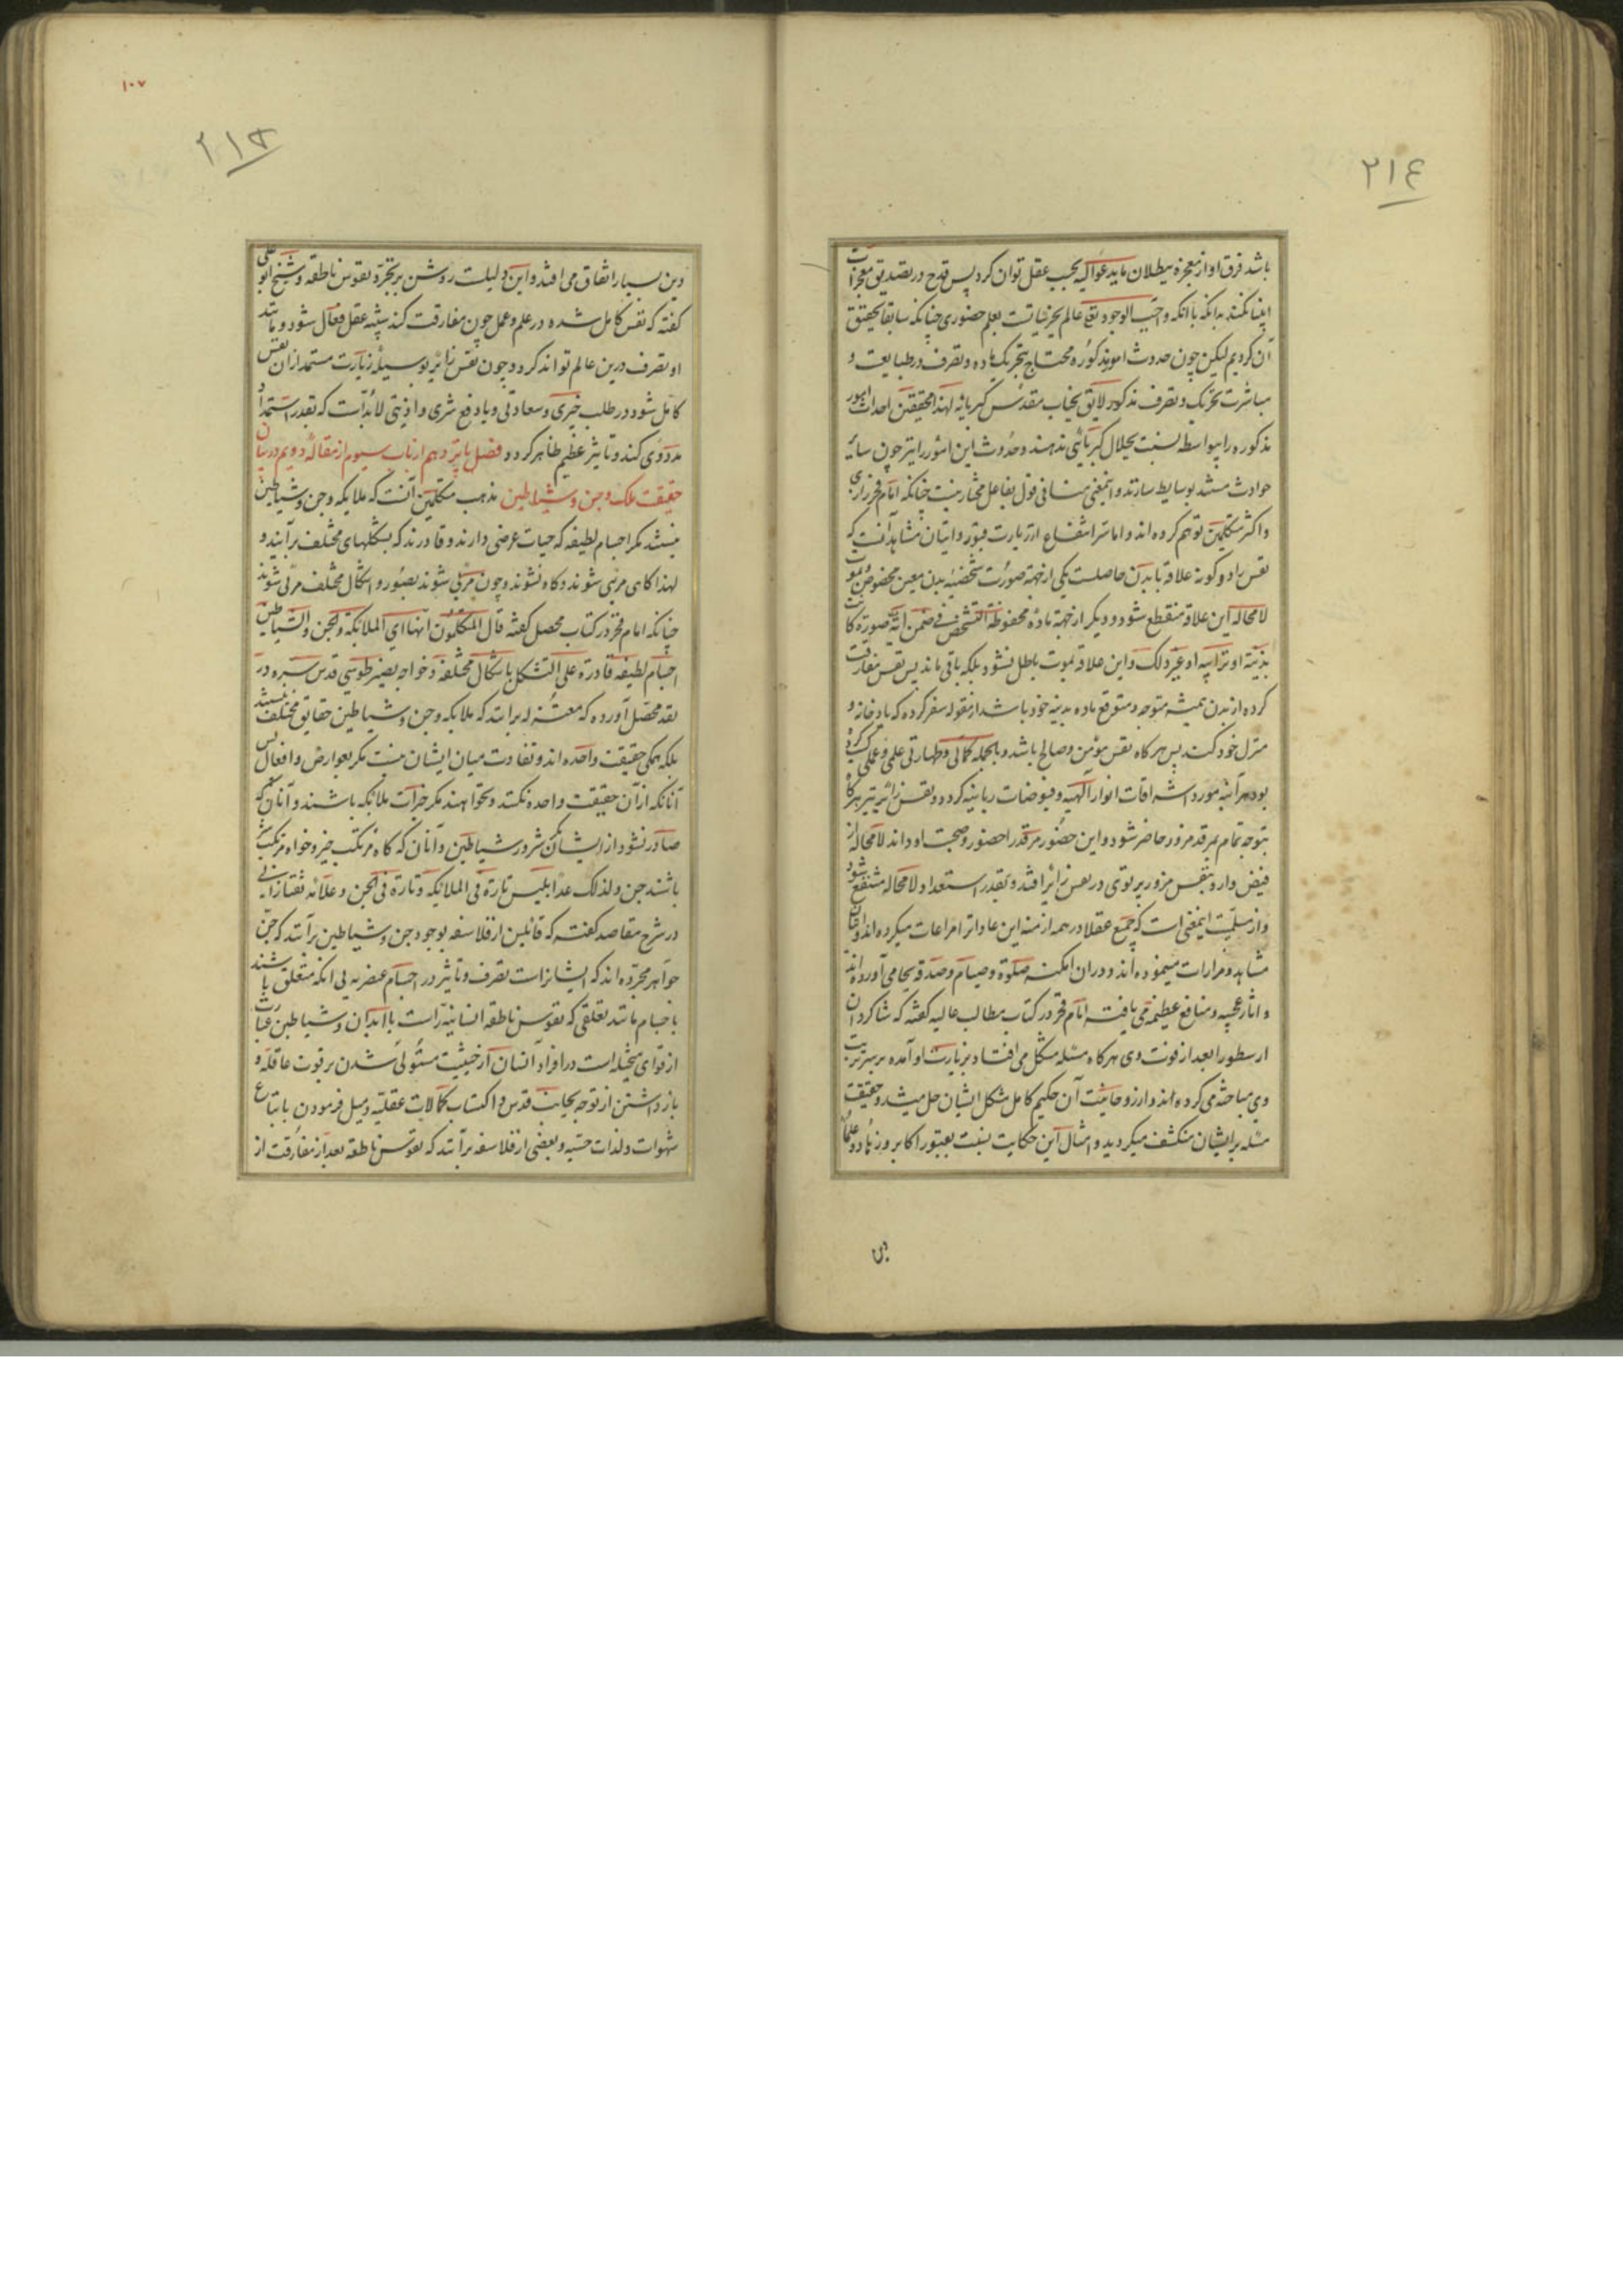 ۲۱٤
باشد فرق او از معجزه ببطلان ما یدعوا الیه بحسب عقل توان کرد پس قدح در تصدیق معجزات
انبیا نکند بدانکه با انکه واجب الوجود تع عالم بجزئیاتست بعلم حضوری چنانکه سابقا تحقیق
آن کردیم لیکن چون حدوث امور مذکوره محتاج بتحریک ماده و تصرف در طبایعت و
مباشرت تحریک و تصرف مذکور لایق بجناب مقدس کبریا نه لهذا محققین احداث امور
مذکوره را بیواسطه نسبت بجلال کبریائی ندهند و حدوث این امور را نیز چون سایر
حوادث مستند بوسایط سازند و اینمعنی منافی قول بفاعل مختار نیست چنانکه امام فخر رازی
و اکثر متکلمین توهم کرده اند و اما سر انتفاع از زیارت قبور و اتیان مشاهد آنست که
نفس را دو گونه علاقه با بدن حاصلست یکی از جهة صورت شخصیه بدن معین مخصوص بموت
لا محاله این علاقه منقطع شود و دیگر از جهة ماده محفوظة التشخص فی ضمن ایة صورة کانت
بدنیة او ترابیه او غیر ذلک و این علاقه بموت باطل نشود بلکه باقی ماند پس نفس مفارقت
کرده از بدن همیشه متوجه و متوقع ماده بدنیه خود باشد از مقوله سفر کرده که یاد خانه و
منزل خود کند پس هر کاه نفس مؤمن و صالح باشد و بالجمله کمالی و طهارتی علمی و عملی کسب کرده
بود هر آینه مورد اشراقات انوار الهیه و فیوضات ربانیه کردد و نفس زائر نیز هر کاه
بتوجه تمام بمرقد مزور حاضر شود و این حضور مرقد را حضور و صحبت او داند لا محاله از
فیض وارد بنفس مزور پرتوی در نفس زائر افتد و بقدر استعداد لا محاله منتفع شود
و از مبنیت اینمعنی است که جمیع عقلا در همه ازمنه این عادات را مراعات میکرده اند و اتیان
مشاهد و مزارات مینموده اند و در ان امکنه صلوة و صیام و صدقه بجا می آورده اند
و اثار عجیبه و منافع عظیمه می یافته امام فخر در کتاب مطالب عالیه کفته که شاکردان
ارسطو را بعد از فوت وی هر کاه مسئله مشکل می افتاد بزیارت او آمده بر سر تربت
وی مباحثه می کرده اند و از روحانیت آن حکیم کامل مشکل ایشان حل میشد و حقیقت
مسئله بر ایشان منکشف میکردید و امثال این حکایت نسبت بقبور اکابر و زهاد و علماء
دین
۱۰۷
۲۱۳
دین بسیار اتفاق می افتد و این دلیلت روشن بر تجرد نفوس ناطقه و شیخ ابو علی
کفته که نفس کامل شده در علم و عمل چون مفارقت کند شبیه عقل فعال شود و مانند
او تصرف درین عالم تواند کرد و چون نفس زائر بوسیله زیارت مستمد از ان نفس
کامل شود در طلب خیری و سعادتی و یا دفع شری و اذیتی لابد است که بقدر استمداد
مددی کند و تاثیر عظیم ظاهر کردد فصل پانزدهم از باب سیوم از مقاله دویم در بیان
حقیقت ملک و جن و شیاطین مذهب متکلمین آنست که ملایکه و جن و شیاطین
نیستند مکر اجسام لطیفه که حیات عرضی دارند و قادرند که بشکلهای مختلف بر آیند و
لهذا کاهی مرئی شوند و کاه نشوند و چون مرئی شوند بصور و اشکال مختلف مرئی شوند
چنانکه امام فخر در کتاب محصل کفته قال المتکلمون انها ای الملائکة و الجن و الشیاطین
اجسام لطیفه قادرة علی التشکل باشکال مختلفه و خواجه نصیر طوسی قدس سره در
نقد محصل آورده که معتزله بر انند که ملایکه و جن و شیاطین حقایق مختلف نیستند
بلکه همکی حقیقت واحده اند و تفاوت میان ایشان نیست مکر بعوارض و افعال پس
آنانکه از آن حقیقت واحده نکنند و نخواهند مکر خیرات ملائکه باشند و آنان که
صادر نشود از ایشان مکر شرور شیاطین و آنان که کاه مرتکب خیر و خواه مرتکب شر
باشند جن و لذلک عد ابلیس تارة فی الملائکه و تارة فی الجن و علامه تفتازانی
در شرح مقاصد کفته که قائلین از فلاسفه بوجود جن و شیاطین بر آنند که جن
جواهر مجرده اند که ایشانراست تصرف و تاثیر در اجسام عنصریه بی انکه متعلق باشند
باجسام مانند تعلقی که نفوس ناطقه انسانیه راست با ابدان و شیاطین عبارت
از قوای متخیله است در افراد انسان از حیثیت مستولی شدن بر قوت عاقله و
بازداشتن از توجه بجانب قدس و اکتساب کمالات عقلیه و میل فرمودن باتباع
شهوات و لذات حسیه و بعضی از فلاسفه بر آنند که نفوس ناطقه بعد از مفارقت از